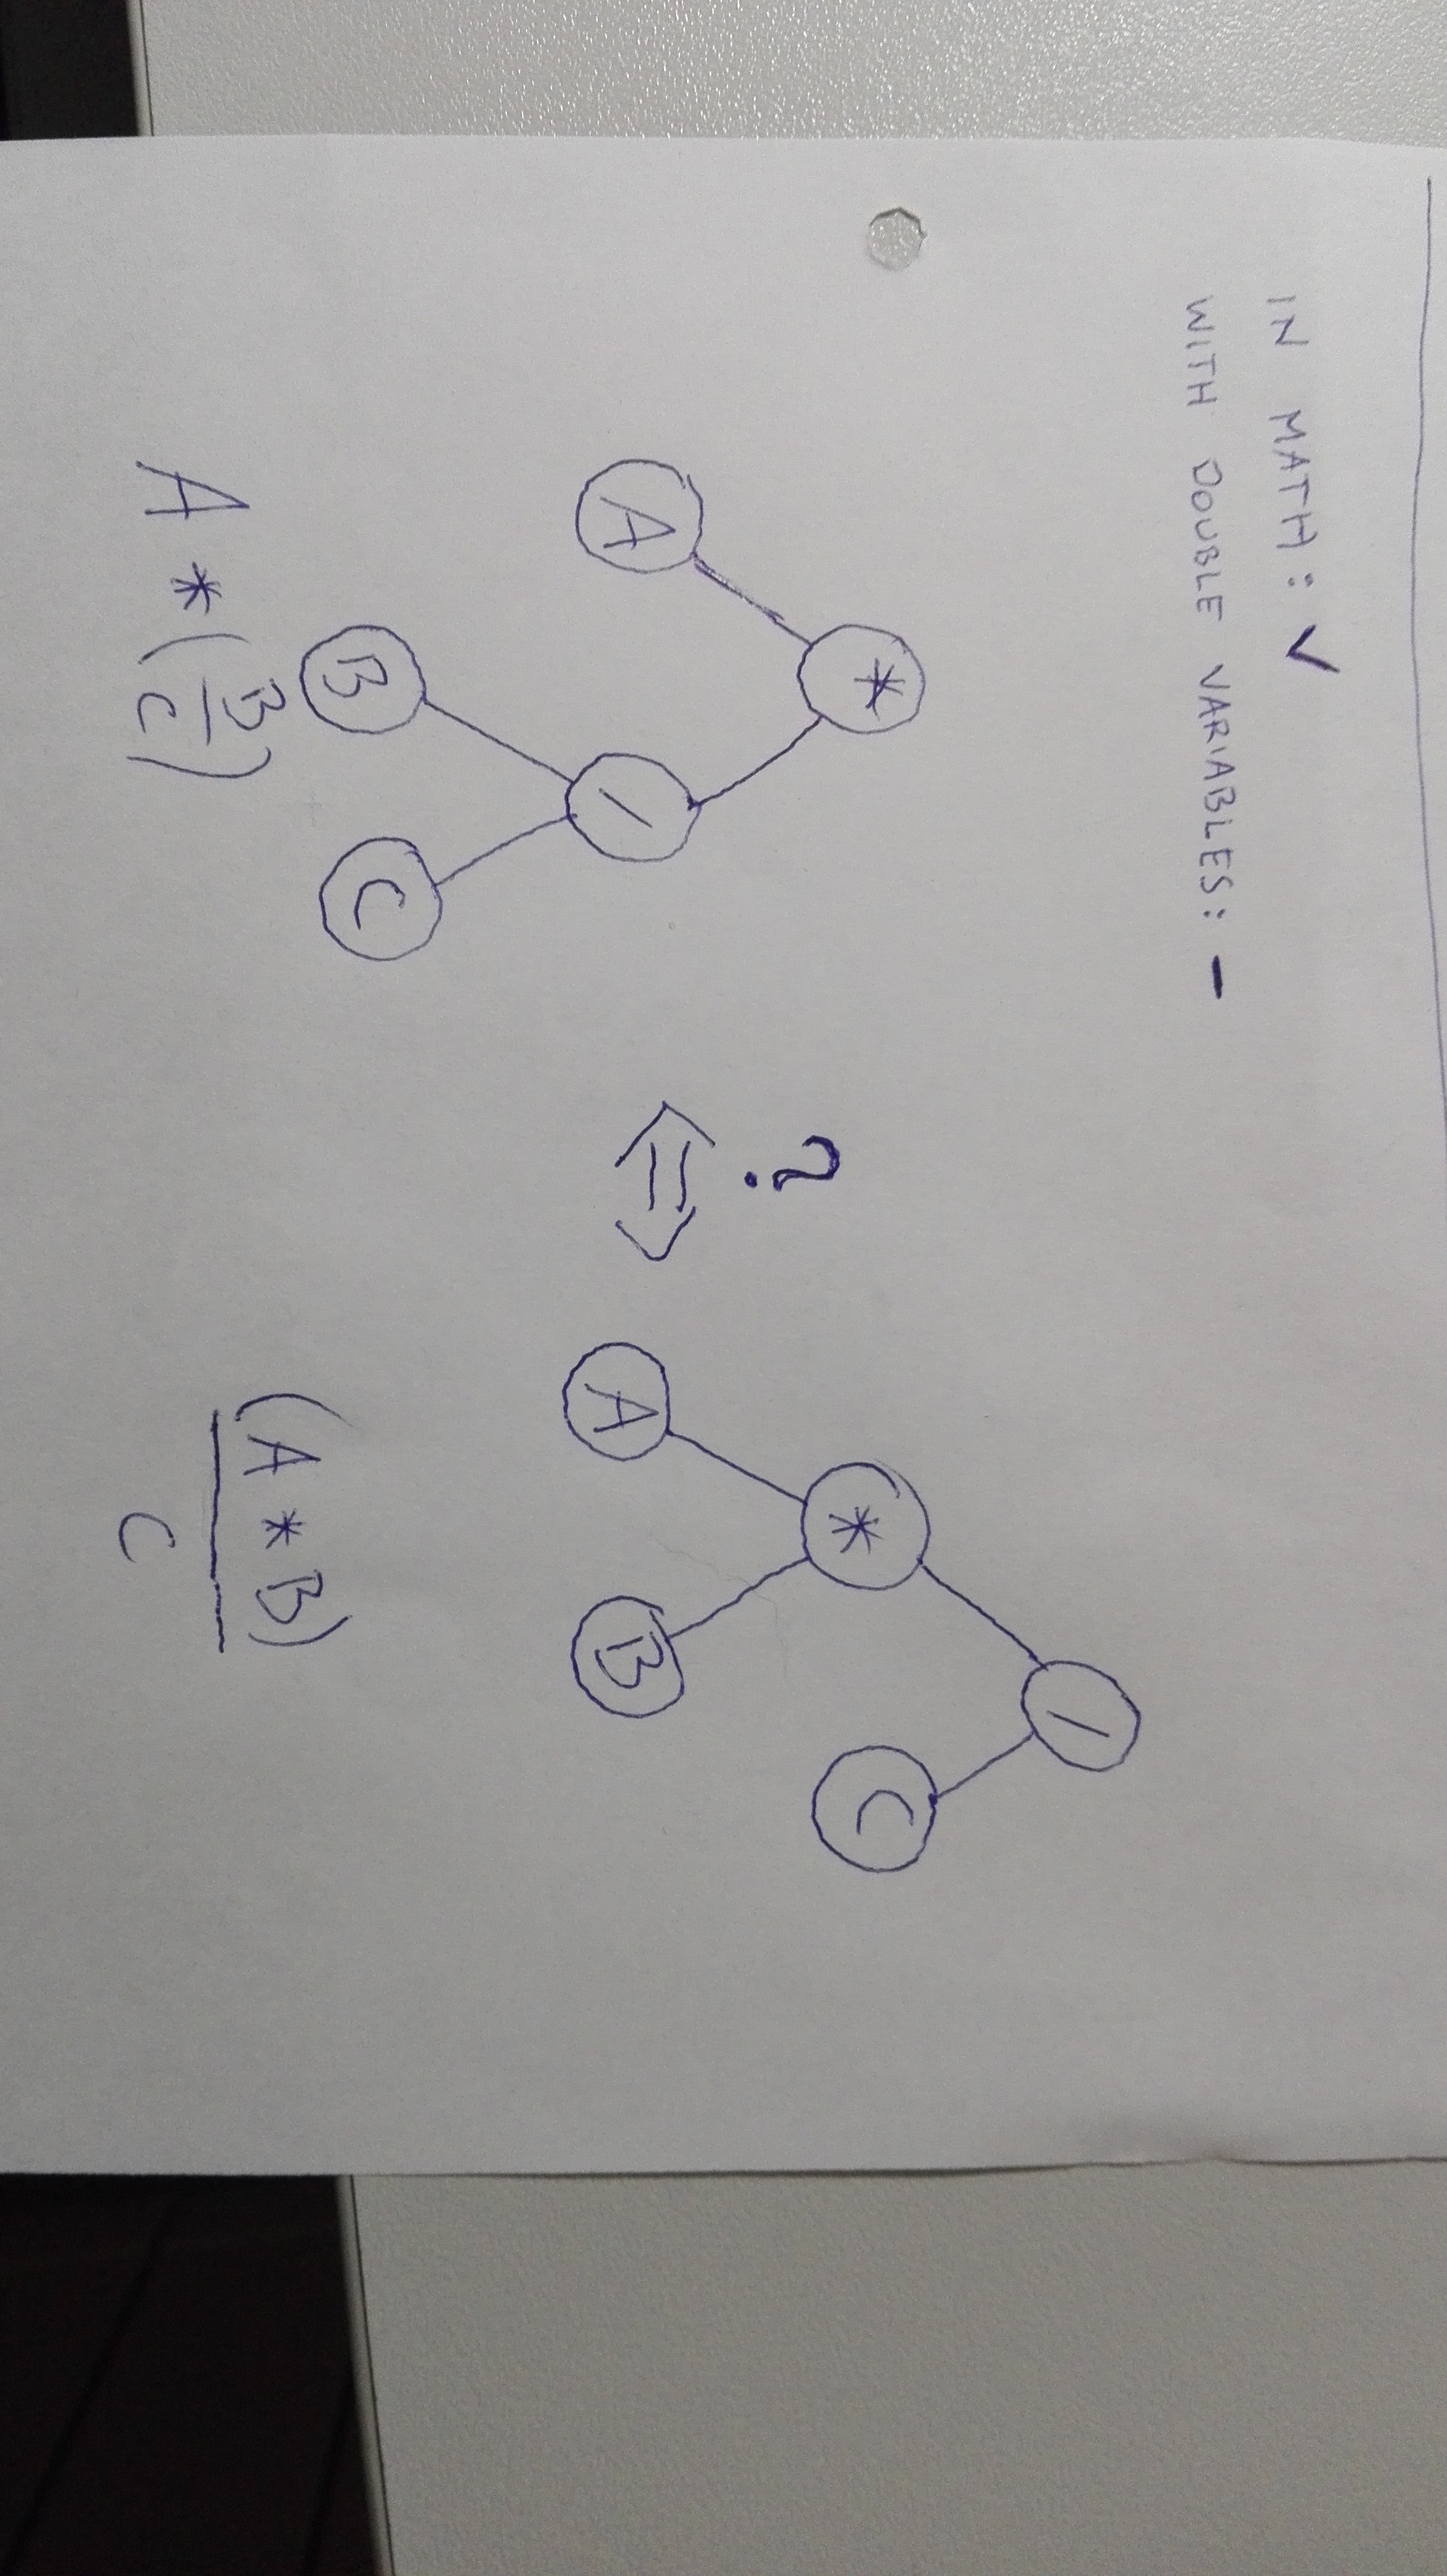 IN MATH: ✓
WITH DOUBLE VARIABLES: –
/
* C
A B
*
A /
B C
?
⇔
A * (B/C)
(A * B)
C